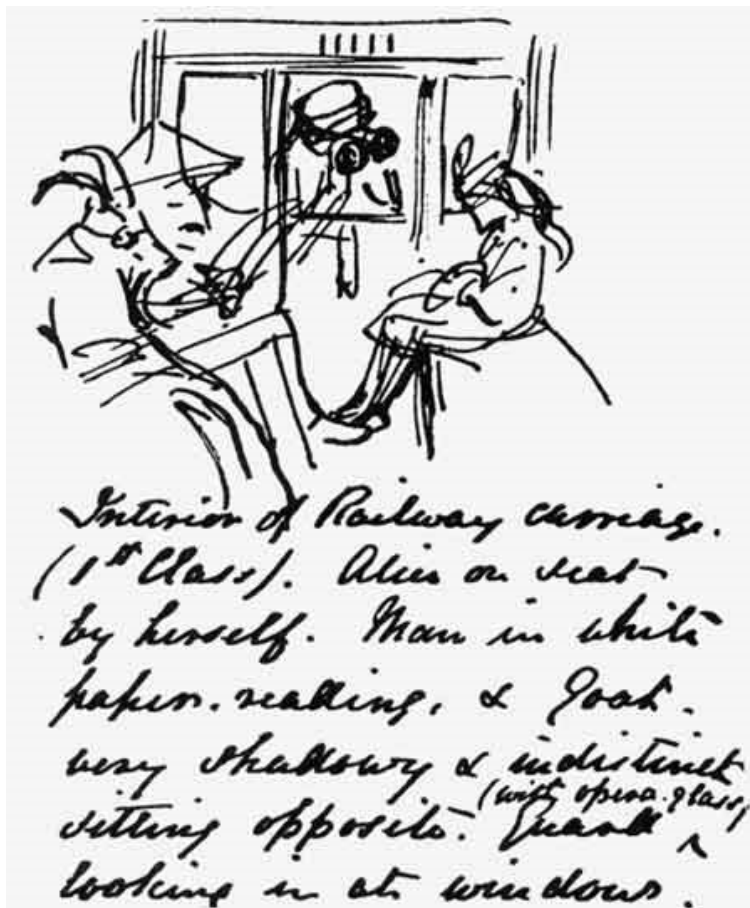 Interior of Railway carriage.
(1st Class). Alice on seat
by herself. Man in white
paper. reading, & Goat.
very shadowy & indistinct
sitting opposite. Guard (with opera-glass)
looking in at window.